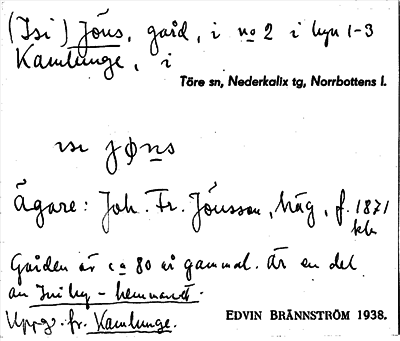 (Isi) Jöns, gård, i no 2 i byn 1-3
Kamlunge, i
Töre sn, Nederkalix tg, Norrbottens l.
ɪsɪ jøns
Ägare: Joh. Fr. Jönsson, häg, f. 1871
Gården är ca 80 år gammal. Är en del
av - hemmanet.
Uppg. fr. Kamlunge.
EDVIN BRÄNNSTRÖM 1938.